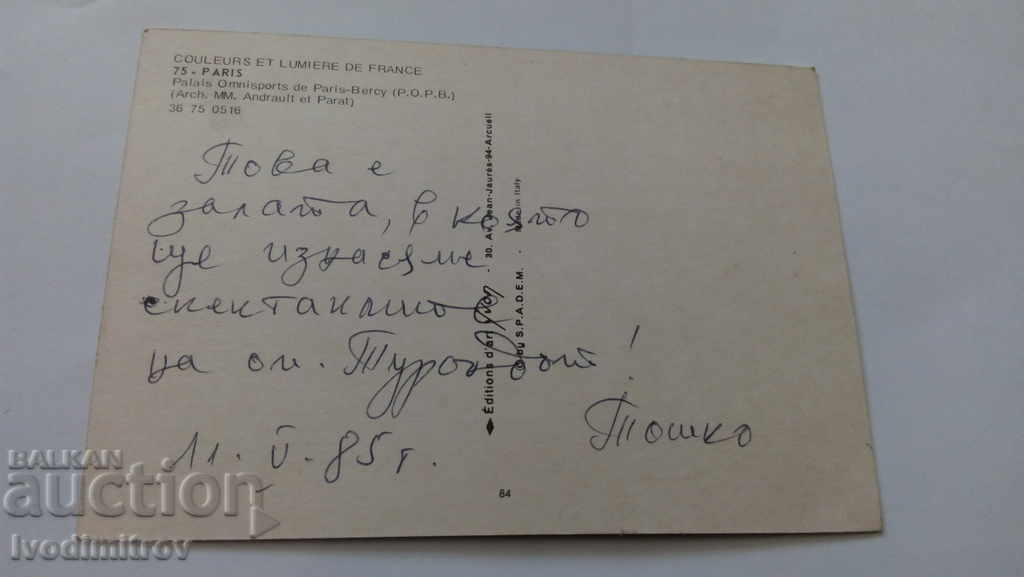 COULEURS ET LUMIERE DE FRANCE
75 - PARIS
Palais Omnisports de Paris-Bercy (P.O.P.B.)
(Arch. MM. Andrault et Parat)
36 75 0516
Това е
залата, в която
ще изнасяме
спектаклите
на оп. "Турандот"!
11. V. 85 г.
Тошко
Éditions d'art - 30, Av. Jean-Jaurès-94-Arcueil
© by S.P.A.D.E.M. - Made in Italy
84
BALKAN
auction
Ivodimitrov